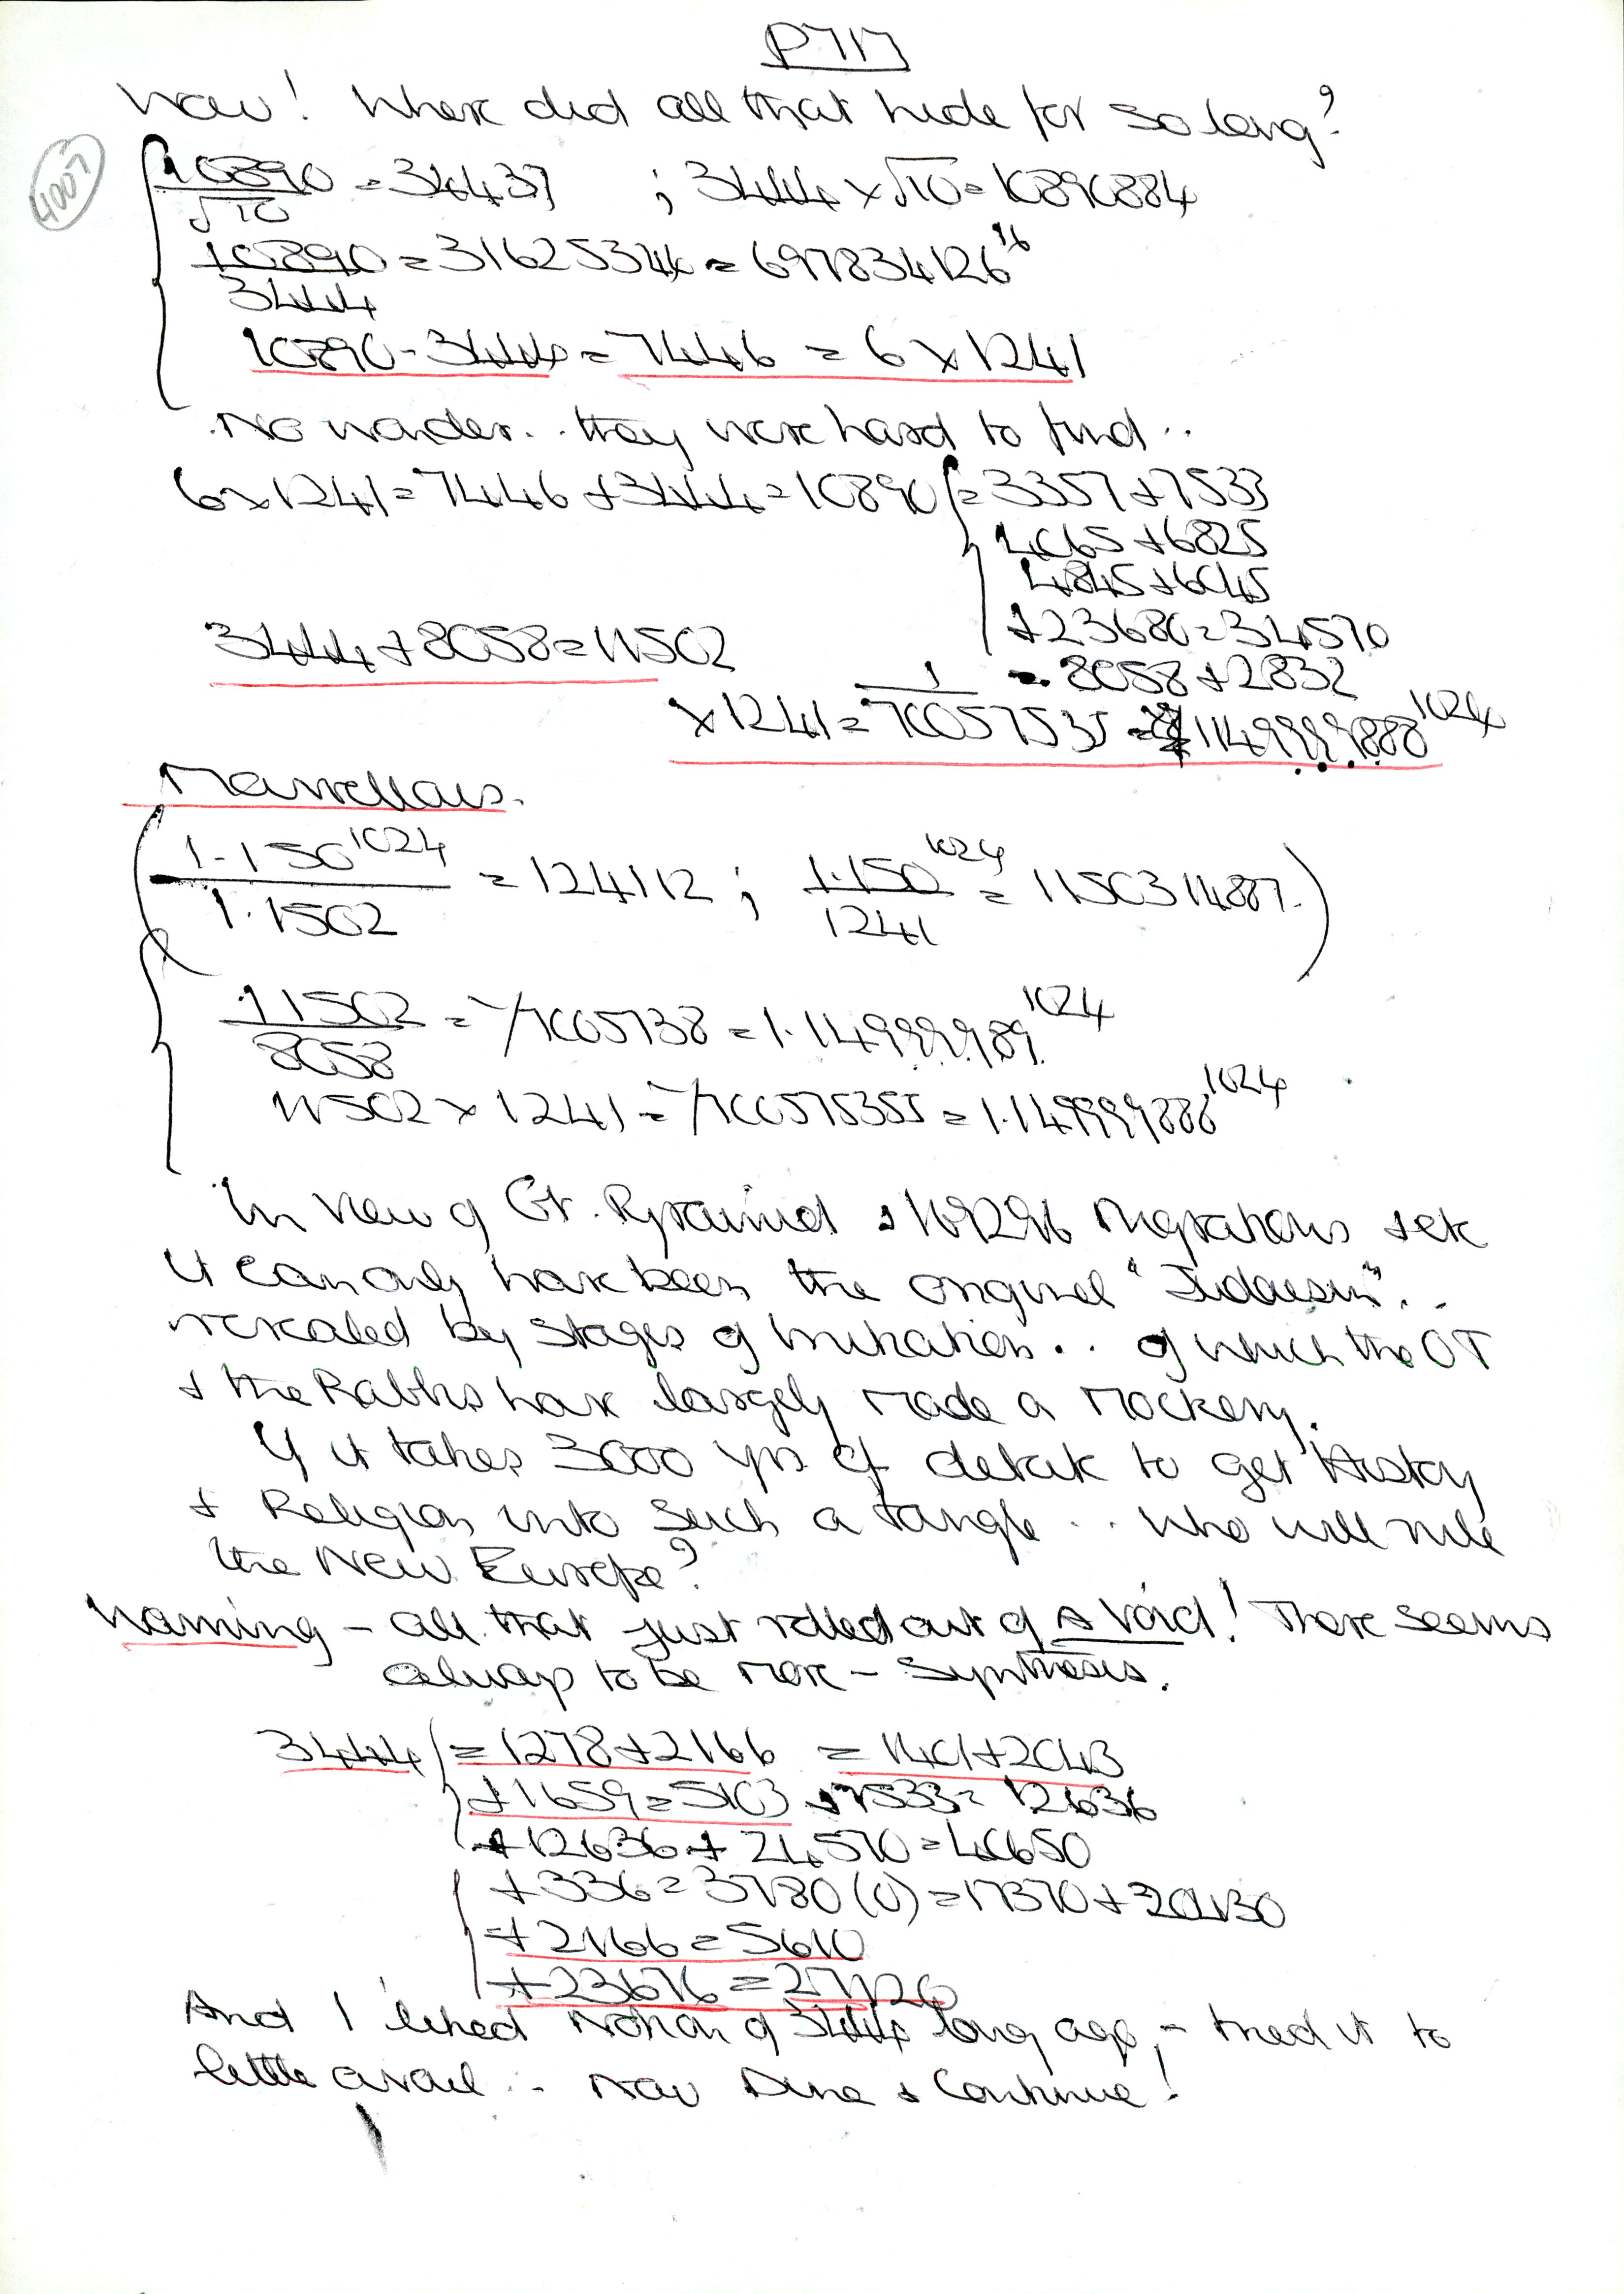 P717
Now! Where did all that hide for so long?
4007
10890/√10 = 34437 ; 3444 x √10 = 10890884
10890/3444 = 316253244 = 697834126^16
10890 - 3444 = 7446 = 6 x 1241
No wonder.. they were hard to find..
6 x 1241 = 7446 + 3444 = 10890 = 3357 + 7533
4065 + 6825
4845 + 6045
+ 23680 = 34570
3444 + 8058 = 11502
= 8058 + 2832
x 1241 = 1/70057535 = 1149999888^1024
Marvellous.
( 1.150^1024/1.1502 = 124112 ; 1.150^1024/1241 = 1150311487. )
11502/8058 = 1/7005738 = 1.149999989^1024
11502 x 1241 = 1/700575355 = 1.149999888^1024
In view of Gt. Pyramid & 169296 Migrations & etc
it can only have been the original "Judaism"..
revealed by stages of initiation.. of which the OT
& the Rabbis have largely made a mockery.
If it takes 3000 yrs of debate to get History
& Religion into such a tangle.. who will rule
the New Europe?
Warning - all that just rolled out of a Void! There seems
always to be more - synthesis.
3444 = 1278 + 2166 = 1401 + 2043
+ 1659 = 5103 + 7533 = 12636
+ 12636 + 24570 = 40650
+ 336 = 3780(0) = 17370 + 20430
+ 2166 = 5610
+ 23676 = 27120
And I liked Notion of 3444 long ago, - tried it to
little avail.. Now Dine & Continue!